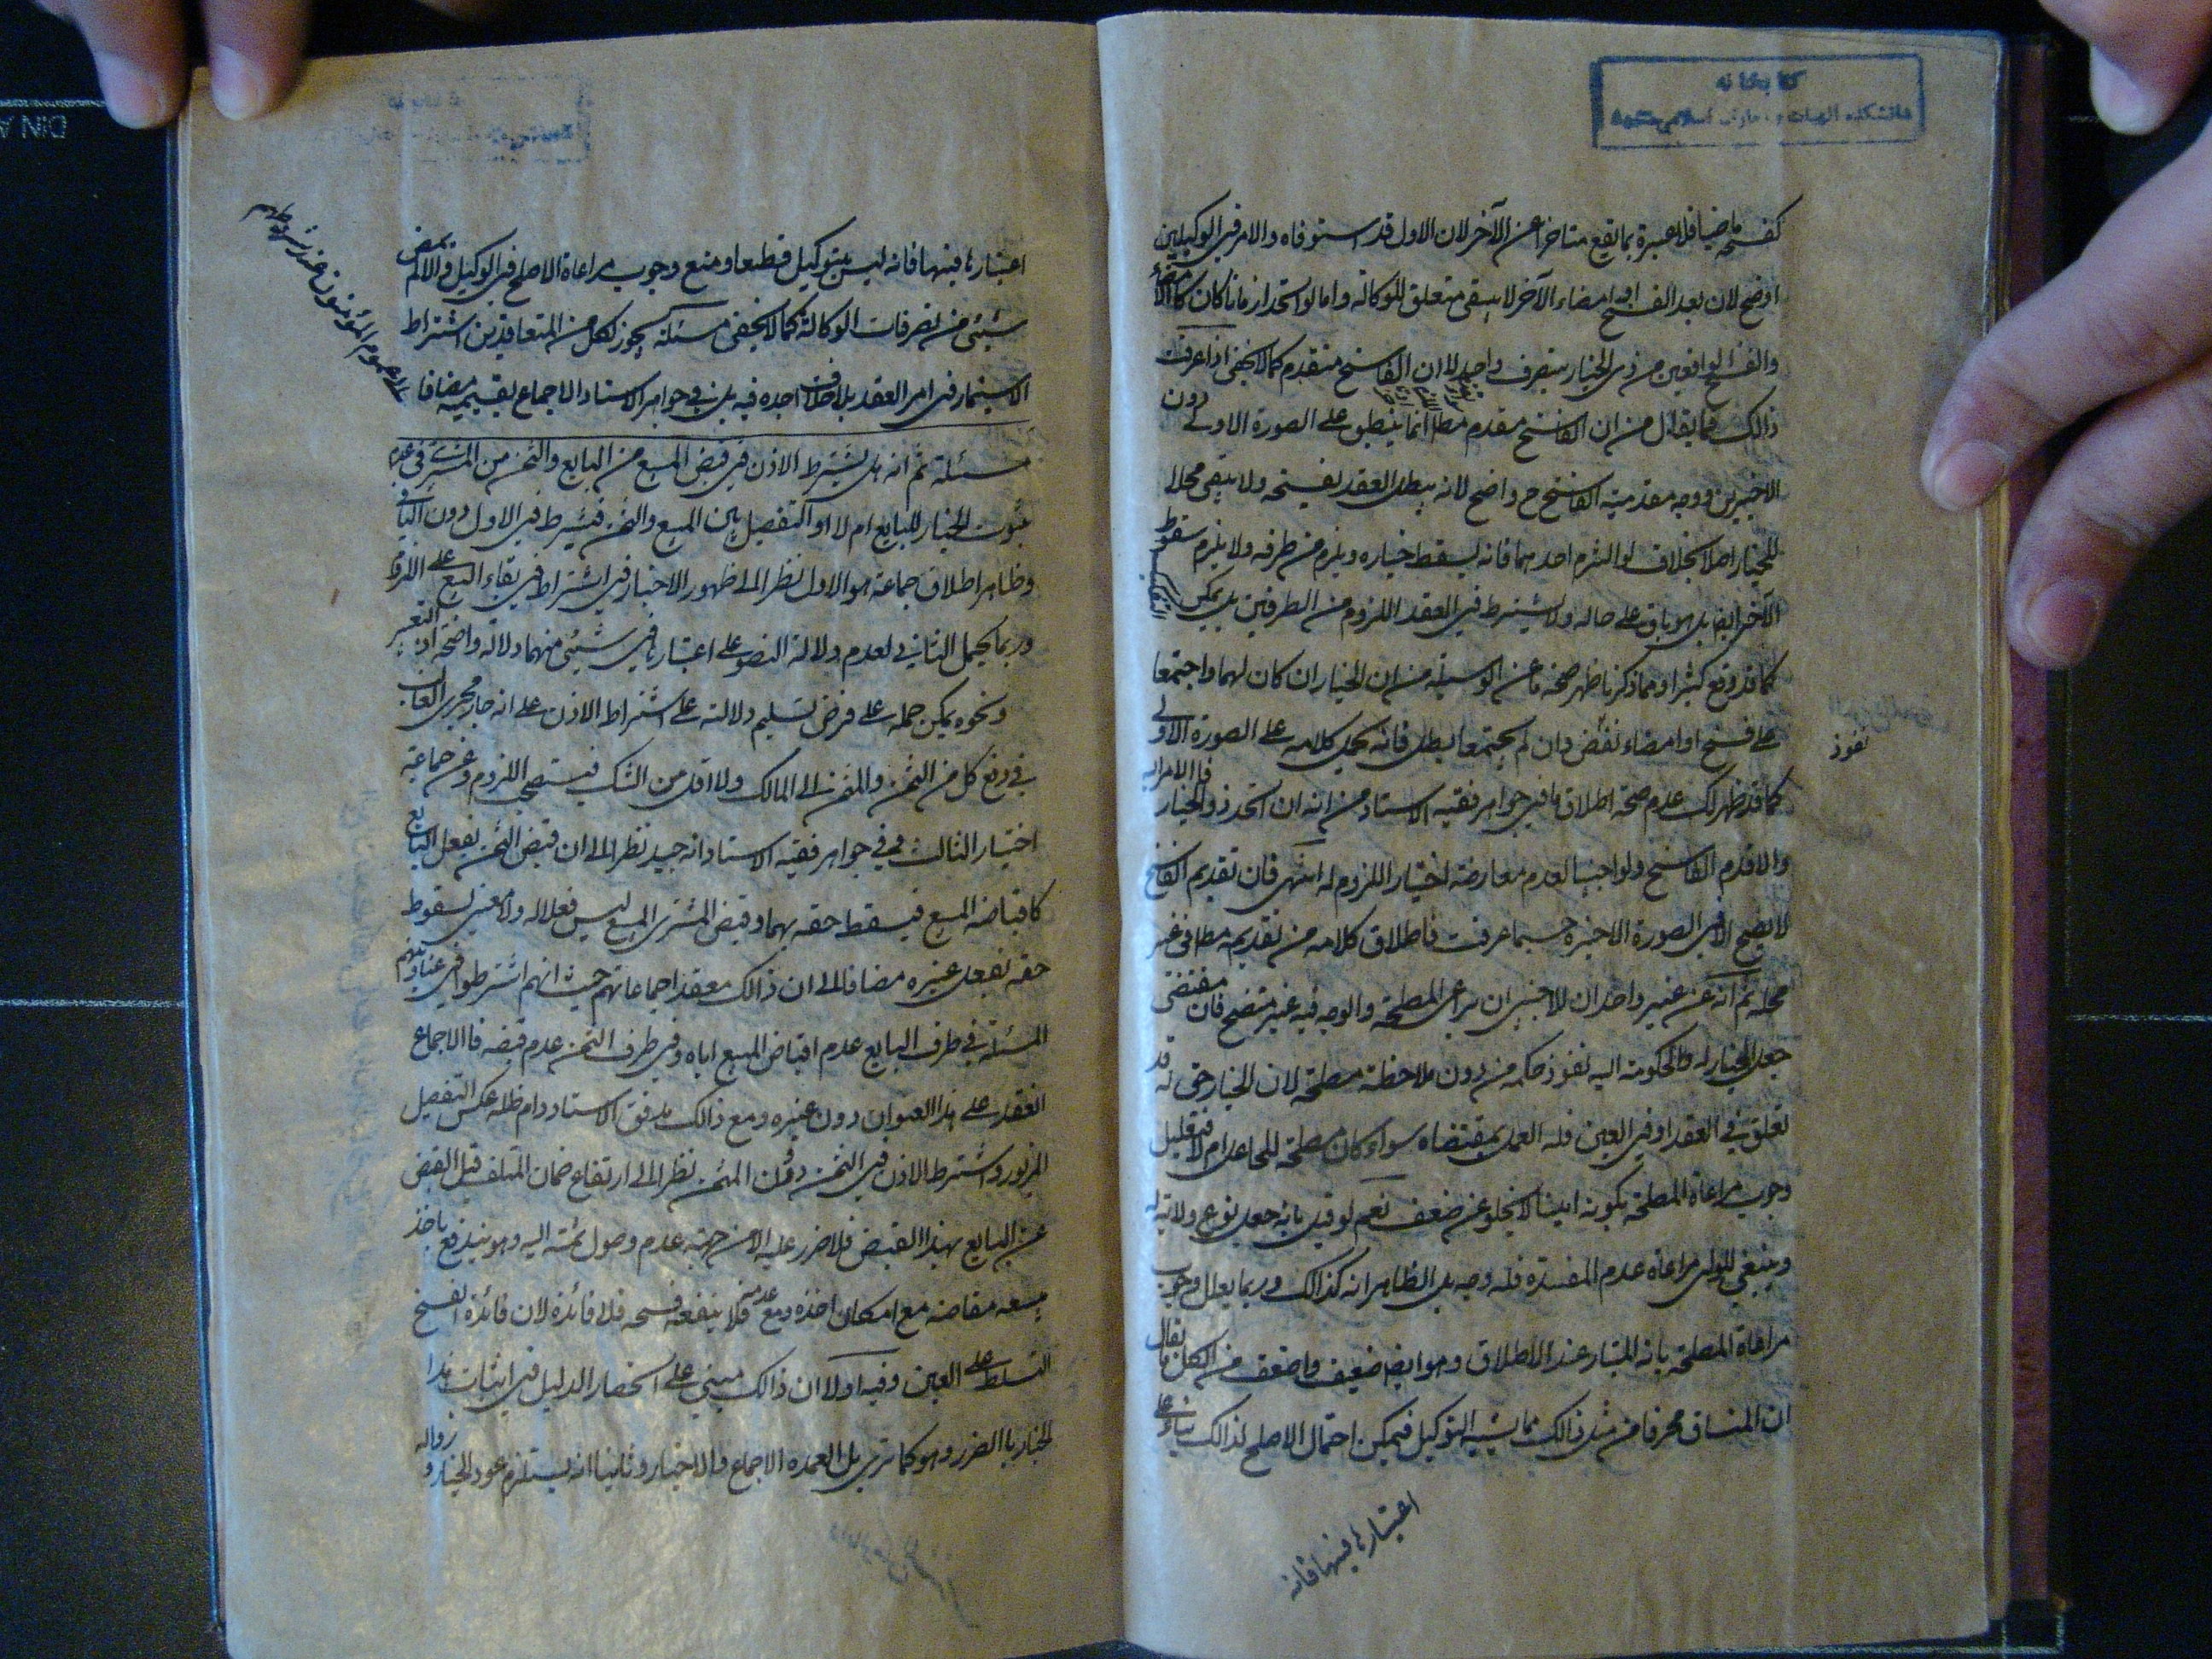 كتابخانه
دانشكده الهيات و معارف اسلامى مشهد
كفسخه ماضيا فلا عبرة بما يقع متاخرا عن الآخر لان الاول قد استوفاه والامر فى الوكيلين
اوضح لان بعد الفسخ او امضاء الآخر لا يبقى متعلق للوكالة واما لو اتحدا زمانا كان كالامضاء
والفسخ الواقعين من ذى الخيار بتصرف واحد لا ان الفاسخ متقدم كما لا يخفى اذا عرفت
ذالك فما يقال من ان الفاسخ مقدم مطا انما ينطبق على الصورة الاولى دون
الاخيرين ووجه مقدمية الفاسخ ح واضح لانه يبطل العقد بفسخه ولا يبقى محلا
للخيار اصلا بخلاف لو التزم احدهما فانه يسقط خياره ويلزم من طرفه ولا يلزم سقوط
الآخر ايض بل هو باق على حاله ولا يشترط فى العقد اللزوم من الطرفين بل يمكن التفكيك
كما قد وقع كثيرا ومما ذكرنا ظهر صحة ما عن الوسيلة من ان الخيار ان كان لهما واجتمعا
على فسخ او امضاء نفذ وان لم يجتمعا بطل فانه يحمل كلامه على الصورة الاولى
نفوذ
كما قد ظهر لك عدم صحة اطلاق ما فى جواهر فقيه الاستاد من انه ان اتحد ذو الخيار فالامر اليه
والا قدم الفاسخ ولو اجنبيا لعدم معارضة اختيار اللزوم له انتهى فان تقديم الفاسخ
لا يصح الا فى الصورة الاخيرة حسبما عرفت فاطلاق كلامه من تقديمه مطا فى غير
محله ثم انه عن غير واحد ان للاجنبى ان يراعى المصلحة والوجه فيه غير متضح فان مقتضى
جعل الخيار له كالحكومة اليه نفوذ حكمه من دون ملاحظة مصلحة لان الخيار حق له قد
تعلق فى العقد او فى العين فله العمل بمقتضاه سواء كان مصلحة للجاعل ام لا فتعليل
وجوب مراعاة المصلحة بكونه امينا لا يخلو عن ضعف نعم لو قيل بانه جعل نوع ولاية له
وينبغى للولى مراعاة عدم المفسدة فله وجه بل الظاهر انه كذالك وربما يعلل وجوب
مراعاة المصلحة بانه المتبادر عند الاطلاق وهو ايض ضعيف واضعف من الكل ما يقال
ان المنساق عرفا من مثل ذالك مما يشبه التوكيل فيمكن احتمال الاصلح لذالك بناء على
اعتبارها فيهما فانه
اعتبارها فيهما فانه ليس بتوكيل قطعا ومنع وجوب مراعاة الاصلح فى الوكيل والا لم يمض
شيئ من تصرفات الوكالة كما لا يخفى مسئلة يجوز لكل من المتعاقدين اشتراط
الاستيمار فى امر العقد بلا خلاف اجده فيه بل فى جواهر الاستاد الاجماع بقسيميه مضافا
الى عموم المؤمنون عند شروطهم
مسئلة ثم انه هل يشترط الاذن فى قبض المبيع من البايع والثمن من المشترى فى عدم
ثبوت الخيار للبايع ام لا او التفصيل بين المبيع والثمن فيشترط فى الاول دون الثانى
وظاهر اطلاق جماعة هو الاول نظرا الى ظهور الاخبار فى اشتراط فى بقاء البيع على اللزوم
وربما يحمل الثانى لعدم دلالة النصوص على اعتبارها فى شيئ منهما دلالة واضحة اذ التعبير
ونحوه يمكن حمله على فرض تسليم دلالته على اشتراط الاذن على انه جار مجرى الغالب
فى دفع كل من الثمن والمثمن الى المالك ولا اقل من الشك فيستصحب اللزوم وعن جماعة
اختيار الثالث وفى جواهر فقيه الاستاد انه جيد نظرا الى ان قبض الثمن بفعل البايع
كاقباضه المبيع فيسقط حقه بهما وقبض المشترى المبيع ليس فعلا له ولا معنى لسقوط
حقه بفعل غيره مضافا الى ان ذالك معقد اجماعاتهم حيث انهم اشترطوا فى عناوينهم
المسئلة فى طرف البايع عدم اقباض المبيع اياه وفى طرف الثمن عدم قبضه فالاجماع
انعقد على هذا العنوان دون غيره ومع ذالك فرق الاستاد دام ظله عكس التفصيل
المزبور واشترط الاذن فى الثمن دون المثمن نظرا الى ارتفاع ضمان التلف قبل القبض
عن البايع بهذا القبض فلا ضرر عليه الا من جهة عدم وصول ثمنه اليه وهو يندفع باخذ
مبيعه مقاصة مع امكان اخذه ومع عدمه فلا ينفعه فسخه فلا فائدة لان فائدة الفسخ
التسلط على العين وفيه اولا ان ذالك مبنى على انحصار الدليل فى اثبات هذا
الخيار بالضرر وهو كما ترى بل العمدة الاجماع والاخبار وثانيا انه يستلزم عود الخيار و زواله